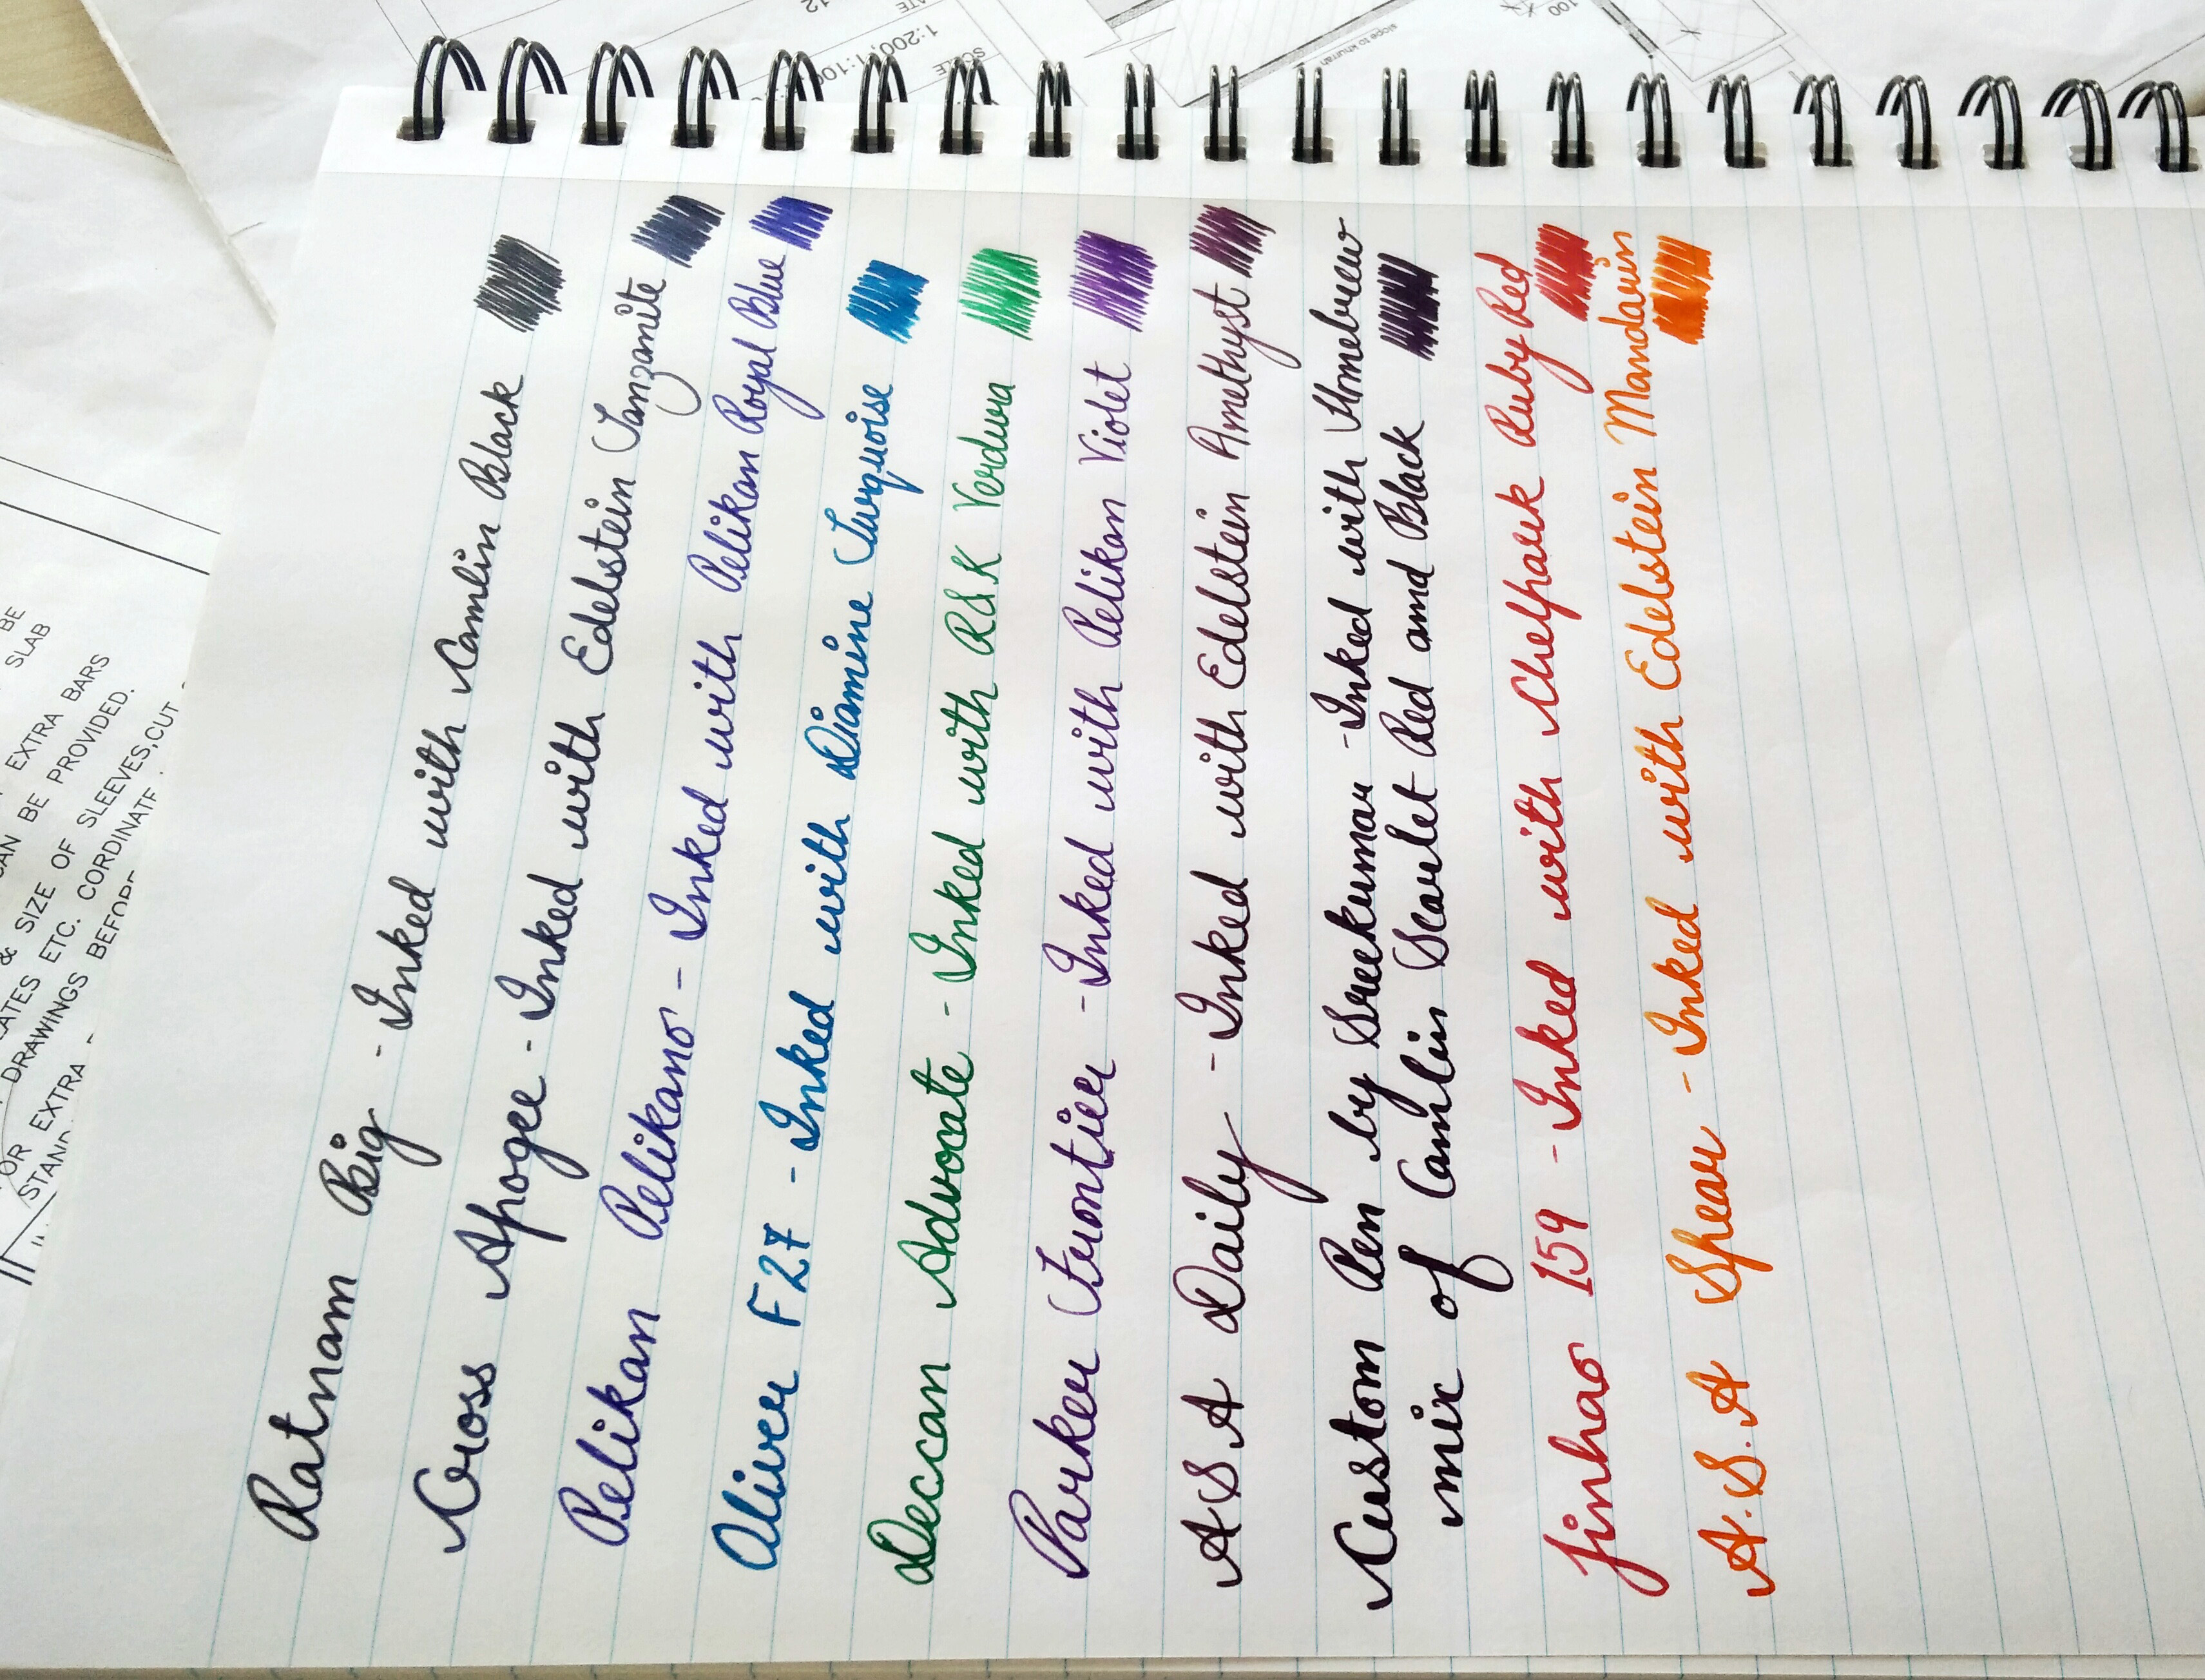 Ratnam Big - Inked with Camlin Black
Cross Apogee - Inked with Edelstein Tanzanite
Pelikan Pelikano - Inked with Pelikan Royal Blue
Oliver F27 - Inked with Diamine Turquoise
Deccan Advocate - Inked with R&K Verdura
Parker Frontier - Inked with Pelikan Violet
A S A Daily - Inked with Edelstein Amethyst
Custom Pen by Sreekumar - Inked with Homebrew
mix of Camlin Scarlet Red and Black
Jinhao 159 - Inked with Chelpark Ruby Red
A.S.A Spear - Inked with Edelstein Mandarin
BE
SLAB
EXTRA BARS
CAN BE PROVIDED.
& SIZE OF SLEEVES,CUT
ETC. CORDINATE
DRAWINGS BEFORE
OR EXTRA
SCALE
1:200,1:100
12
100
slope to khurrah